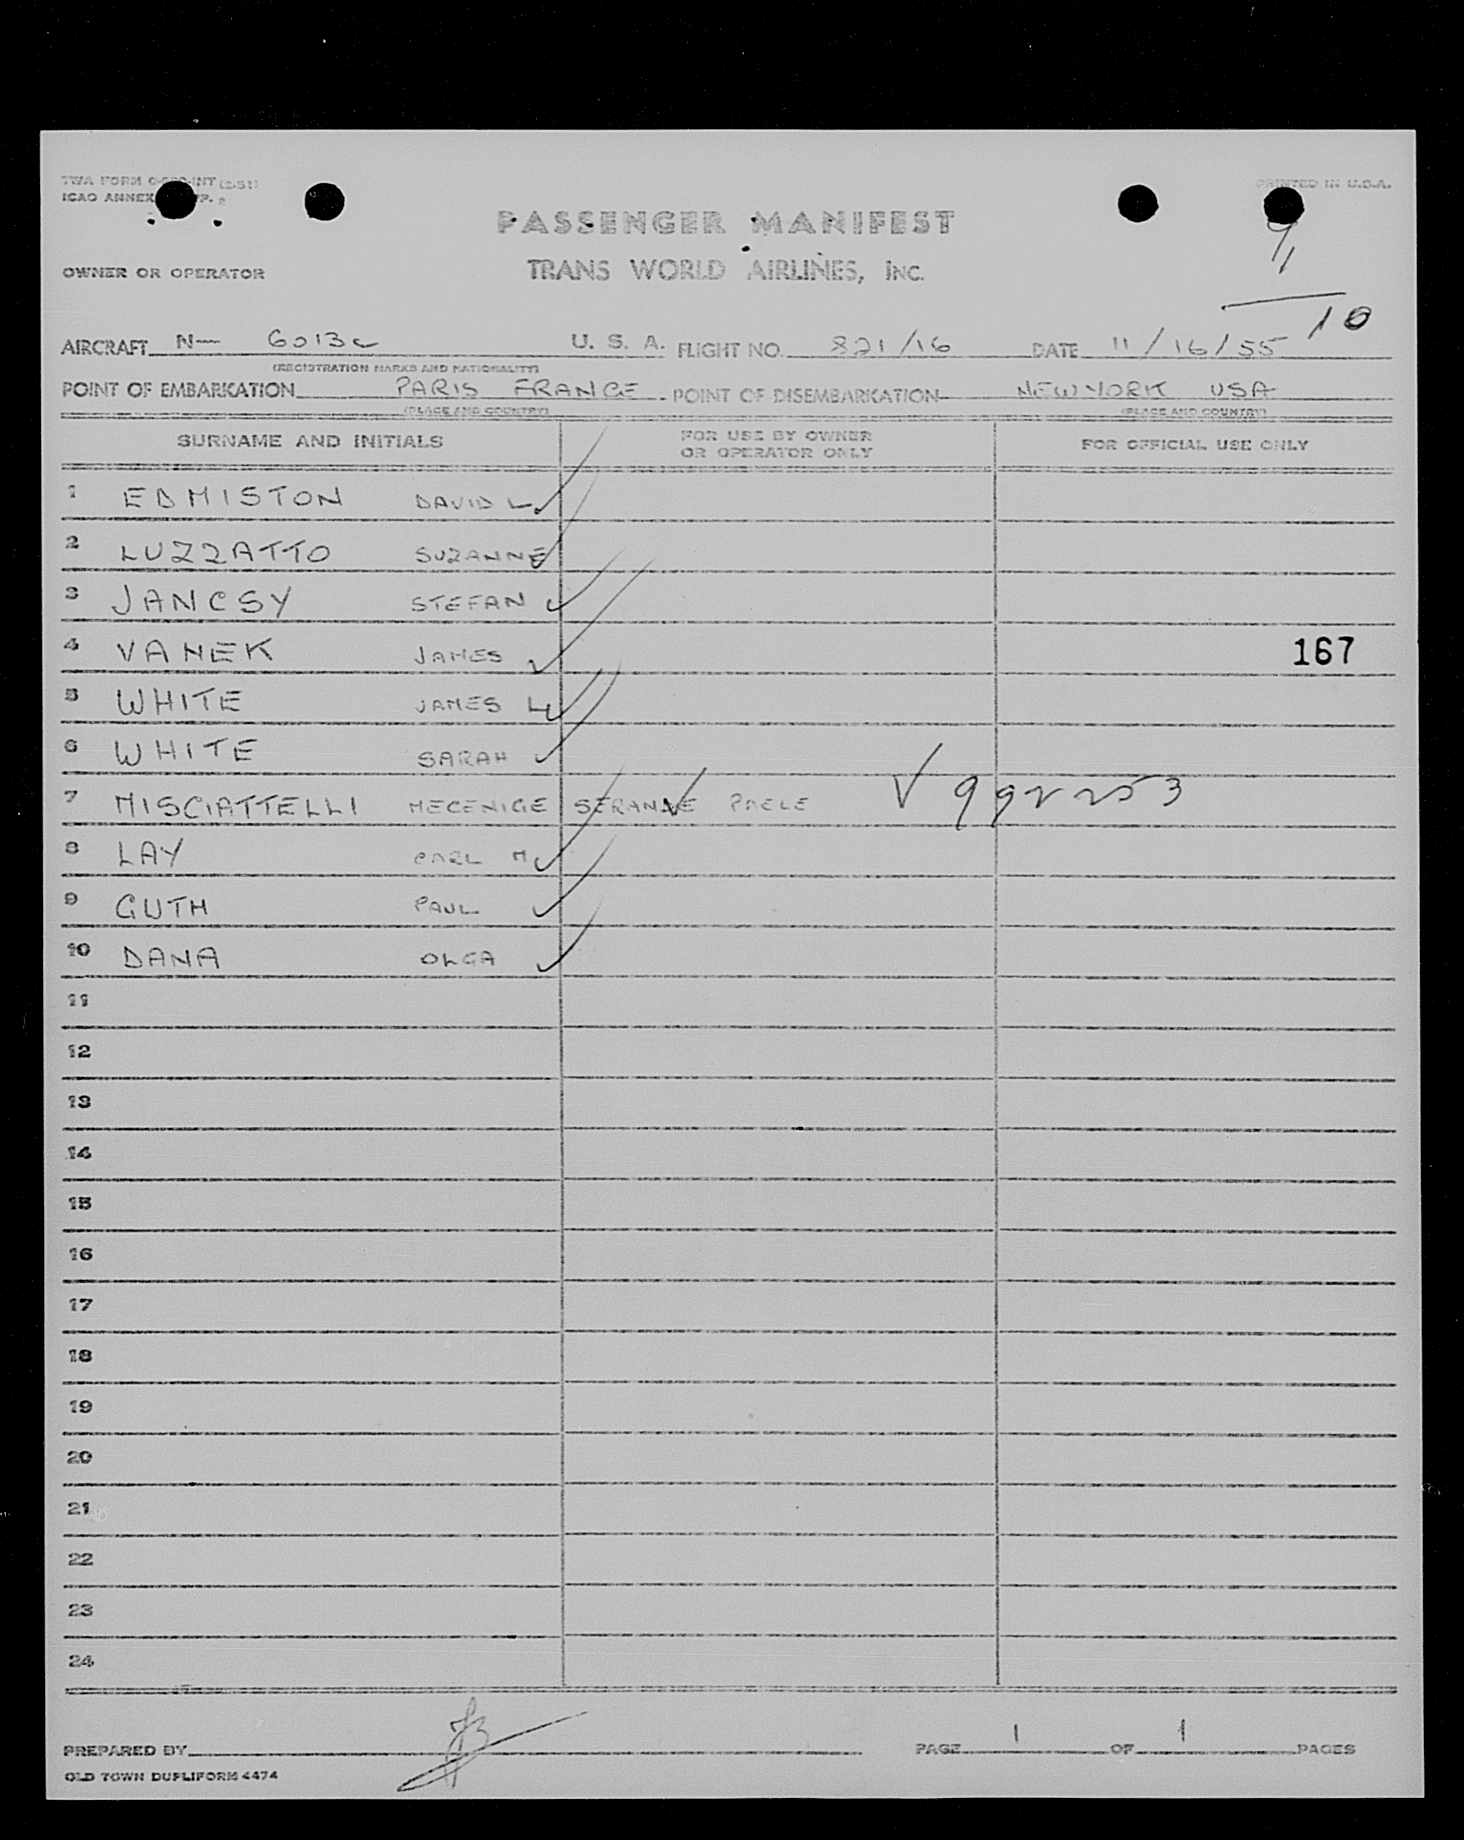 TWA FORM (2-51)
PRINTED IN U.S.A.
ICAO ANNEX
PASSENGER MANIFEST
9/1
OWNER OR OPERATOR TRANS WORLD AIRLINES, INC.
10
AIRCRAFT N— 6013C U. S. A. FLIGHT NO. 821/16 DATE 11/16/55
(REGISTRATION MARKS AND NATIONALITY)
POINT OF EMBARKATION PARIS FRANCE POINT OF DISEMBARKATION NEW YORK USA
(PLACE AND COUNTRY) (PLACE AND COUNTRY)
SURNAME AND INITIALS FOR USE BY OWNER OR OPERATOR ONLY FOR OFFICIAL USE ONLY
1 EDMISTON DAVID L
2 LUZZATTO SUZANNE
3 JANCSY STEFAN
4 VANEK JAMES 167
5 WHITE JAMES L
6 WHITE SARAH
7 MISCIATTELLI MECENIGE PAELE
8 LAY CARL M
9 GUTH PAUL
10 DANA OLGA
11
12
13
14
15
16
17
18
19
20
21
22
23
24
PREPARED BY PAGE 1 OF 1 PAGES
OLD TOWN DUPLIFORM 4474